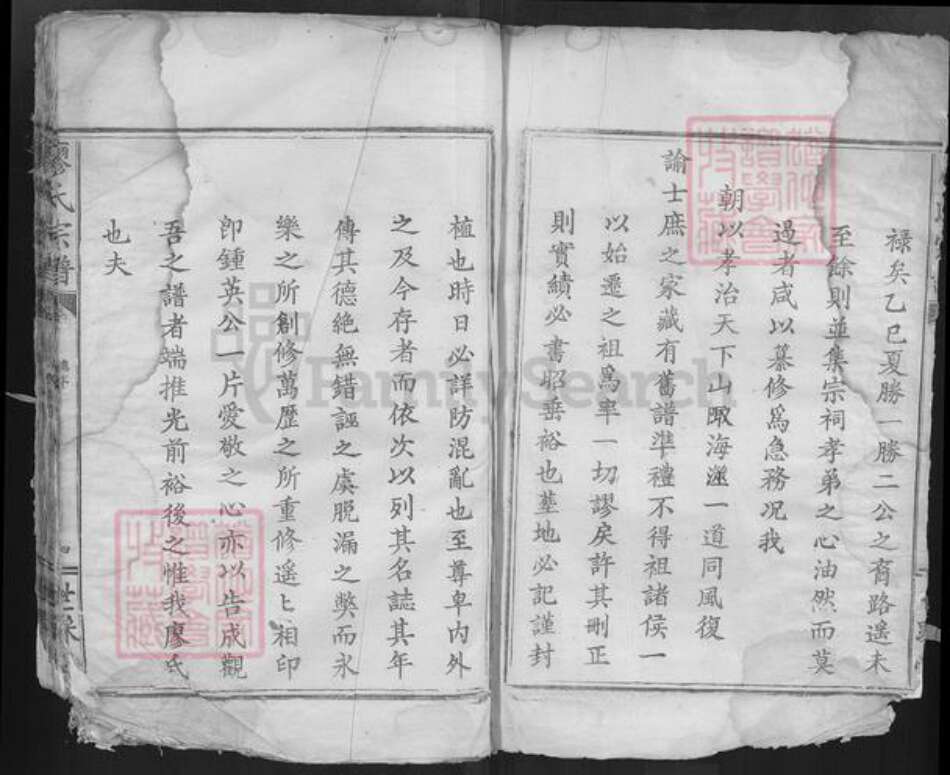 祿矣乙巳夏勝一勝二公之裔路遙未
至餘則並集宗祠孝弟之心油然而莫
遏者咸以纂修為急務况我
朝以孝治天下山陬海澨一道同風復
諭士庶之家藏有舊譜準禮不得祖諸侯一
以始遷之祖為率一切謬戾許其刪正
則實績必書昭垂裕也墓地必記謹封
植也時日必詳防混亂也至尊卑內外
之及今存者而依次以列其名誌其年
傳其德絕無錯誣之虞脫漏之獘而永
樂之所創修萬歷之所重修遙匕相印
卽鍾英公一片愛敬之心亦以告成觀
吾之譜者端推光前裕後之惟我廖氏
也夫
廖氏宗譜
世系
FamilySearch